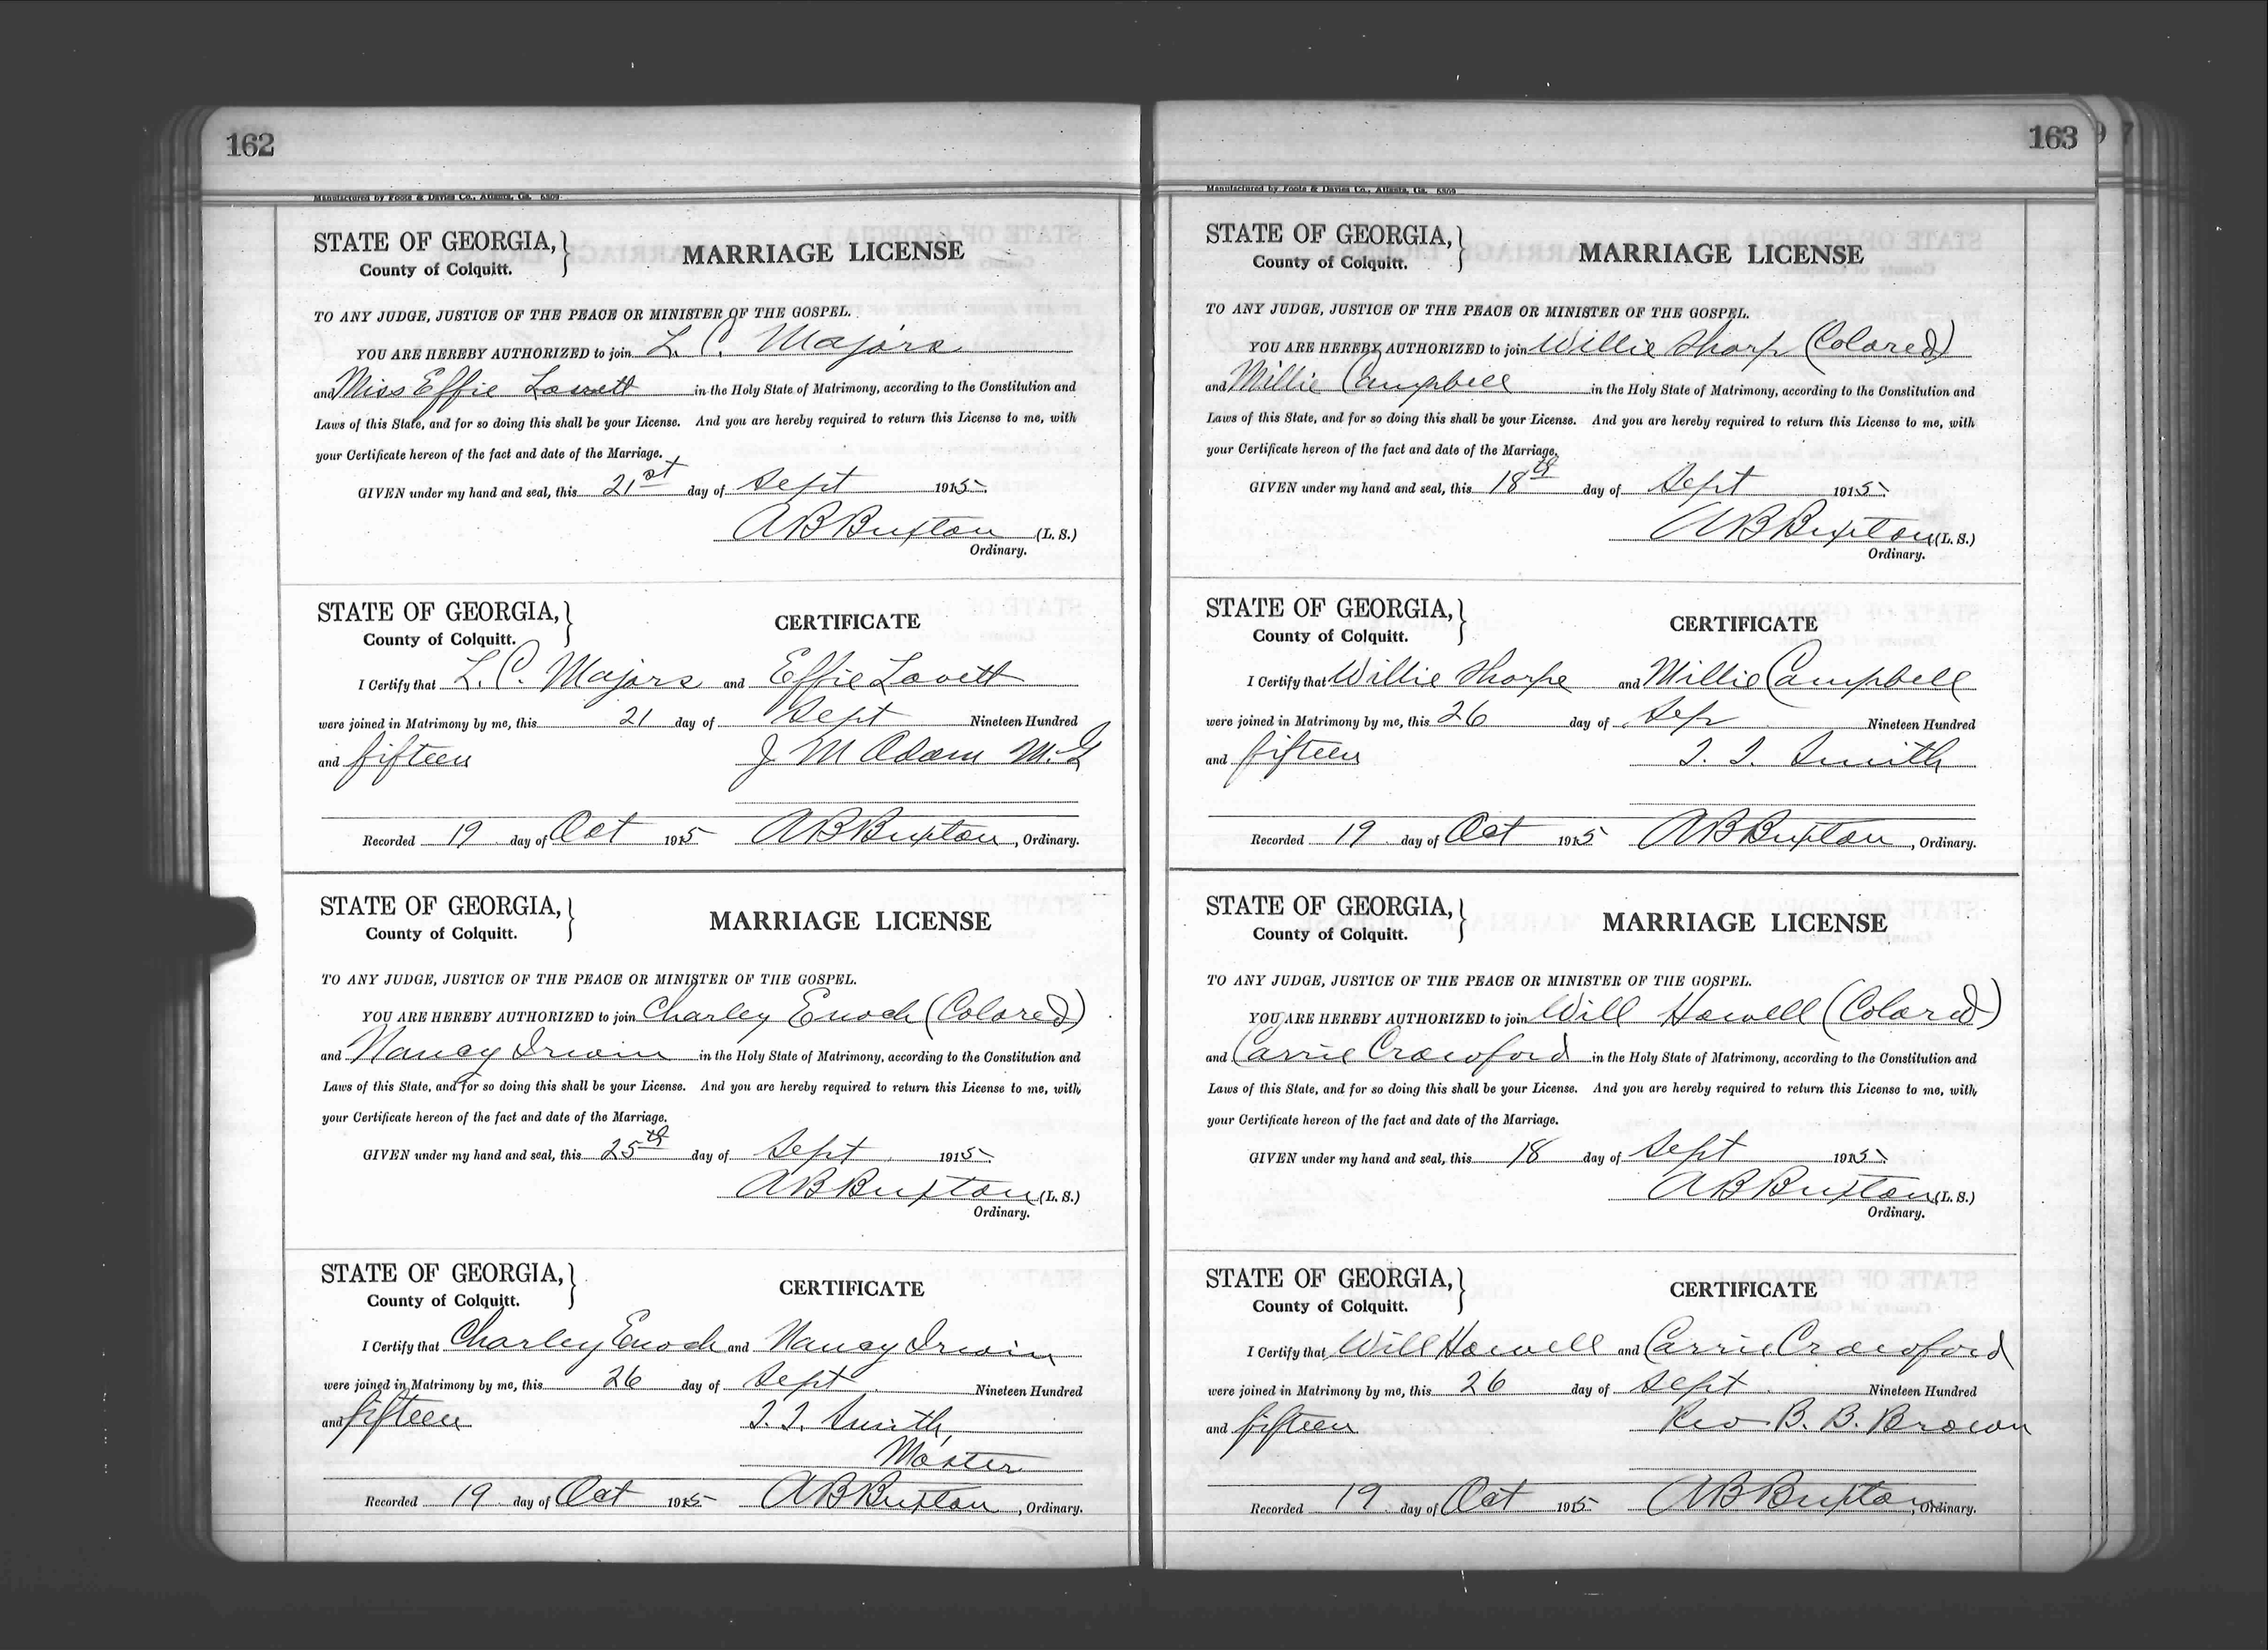 162
Manufactured by Foote & Davies Co., Atlanta, Ga. 6509
STATE OF GEORGIA,
County of Colquitt.
MARRIAGE LICENSE
TO ANY JUDGE, JUSTICE OF THE PEACE OR MINISTER OF THE GOSPEL.
YOU ARE HEREBY AUTHORIZED to join L. C. Majors
and Miss Effie Lowett in the Holy State of Matrimony, according to the Constitution and
Laws of this State, and for so doing this shall be your License. And you are hereby required to return this License to me, with
your Certificate hereon of the fact and date of the Marriage.
GIVEN under my hand and seal, this 21st day of Sept 1915
A B Buxton (L. S.)
Ordinary.
STATE OF GEORGIA,
County of Colquitt.
CERTIFICATE
I Certify that L. C. Majors and Effie Lovett
were joined in Matrimony by me, this 21 day of Sept Nineteen Hundred
and fifteen J M Odom M.G
Recorded 19 day of Oct 1915 A B Buxton, Ordinary.
STATE OF GEORGIA,
County of Colquitt.
MARRIAGE LICENSE
TO ANY JUDGE, JUSTICE OF THE PEACE OR MINISTER OF THE GOSPEL.
YOU ARE HEREBY AUTHORIZED to join Charley Enoch (Colored)
and Nancy Irwin in the Holy State of Matrimony, according to the Constitution and
Laws of this State, and for so doing this shall be your License. And you are hereby required to return this License to me, with
your Certificate hereon of the fact and date of the Marriage.
GIVEN under my hand and seal, this 25th day of Sept 1915
A B Buxton (L. S.)
Ordinary.
STATE OF GEORGIA,
County of Colquitt.
CERTIFICATE
I Certify that Charley Enoch and Nancy Irwin
were joined in Matrimony by me, this 26 day of Sept Nineteen Hundred
and fifteen J. J. Smith,
Master
Recorded 19 day of Oct 1915 A B Buxton, Ordinary.
163
Manufactured by Foote & Davies Co., Atlanta, Ga. 6509
STATE OF GEORGIA,
County of Colquitt.
MARRIAGE LICENSE
TO ANY JUDGE, JUSTICE OF THE PEACE OR MINISTER OF THE GOSPEL.
YOU ARE HEREBY AUTHORIZED to join Willie Sharp (Colored)
and Millie Campbell in the Holy State of Matrimony, according to the Constitution and
Laws of this State, and for so doing this shall be your License. And you are hereby required to return this License to me, with
your Certificate hereon of the fact and date of the Marriage.
GIVEN under my hand and seal, this 18th day of Sept 1915
A B Buxton (L. S.)
Ordinary.
STATE OF GEORGIA,
County of Colquitt.
CERTIFICATE
I Certify that Willie Sharpe and Millie Campbell
were joined in Matrimony by me, this 26 day of Sep Nineteen Hundred
and fifteen J. J. Smith
Recorded 19 day of Oct 1915 A B Buxton, Ordinary.
STATE OF GEORGIA,
County of Colquitt.
MARRIAGE LICENSE
TO ANY JUDGE, JUSTICE OF THE PEACE OR MINISTER OF THE GOSPEL.
YOU ARE HEREBY AUTHORIZED to join Will Howell (Colored)
and Carrie Crawford in the Holy State of Matrimony, according to the Constitution and
Laws of this State, and for so doing this shall be your License. And you are hereby required to return this License to me, with
your Certificate hereon of the fact and date of the Marriage.
GIVEN under my hand and seal, this 18 day of Sept 1915
A B Buxton (L. S.)
Ordinary.
STATE OF GEORGIA,
County of Colquitt.
CERTIFICATE
I Certify that Will Howell and Carrie Crawford
were joined in Matrimony by me, this 26 day of Sept Nineteen Hundred
and fifteen Rev B. B. Brown
Recorded 19 day of Oct 1915 A B Buxton, Ordinary.